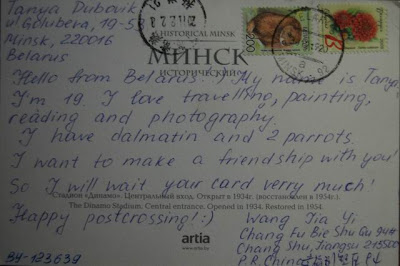 Tanya Dubovik
ul. Golubeva, 19-5
Minsk, 220016
Belarus
HISTORICAL MINSK
МИНСК
ИСТОРИЧЕСКИЙ
200
Hello from Belarus! My name is Tanya.
I'm 19. I love travelling, painting,
reading and photography.
I have dalmatin and 2 parrots.
I want to make a friendship with you!
So I will wait your card verry much!
Стадион «Динамо». Центральный вход. Открыт в 1934г. (восстановлен в 1954г.).
The Dinamo Stadium. Central entrance. Opened in 1934. Restored in 1954.
Happy postcrossing! :)
artia
BY-123639
Wang Jia Yi
Chang Fu Bie Shu Qu 94#
Chang Shu, Jiangsu 215500
P.R. China